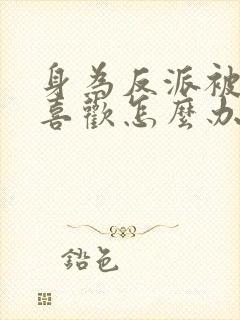 身為反派被
喜歡怎麼办
鉛色